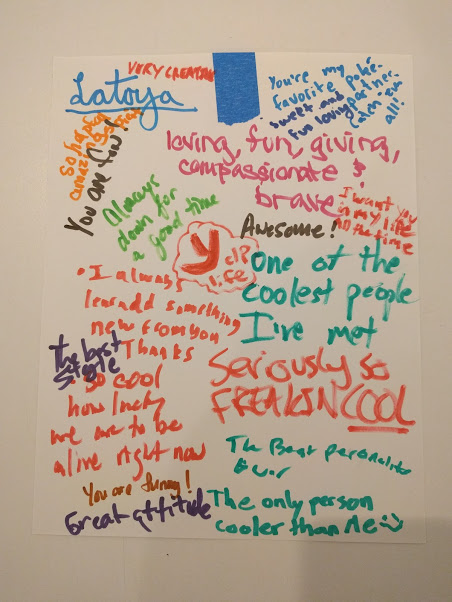 Latoya
VERY CREATIVE
You're my
favorite poké-
partner.
sweet and
fun loving
all!
So helpful
amazing
You are fun!
loving, fun, giving,
compassionate &
brave
I want you
in my life
all the time
Always
down for
a good time
Awesome!
y
life
One of the
coolest people
I've met
• I always
learn something
new from you
Thanks
The best
style
so cool
how lucky
we are to be
alive right now
Seriously so
FREAKIN COOL
The Best personality
Ever
You are funny!
Great attitude
The only person
cooler than Me :)